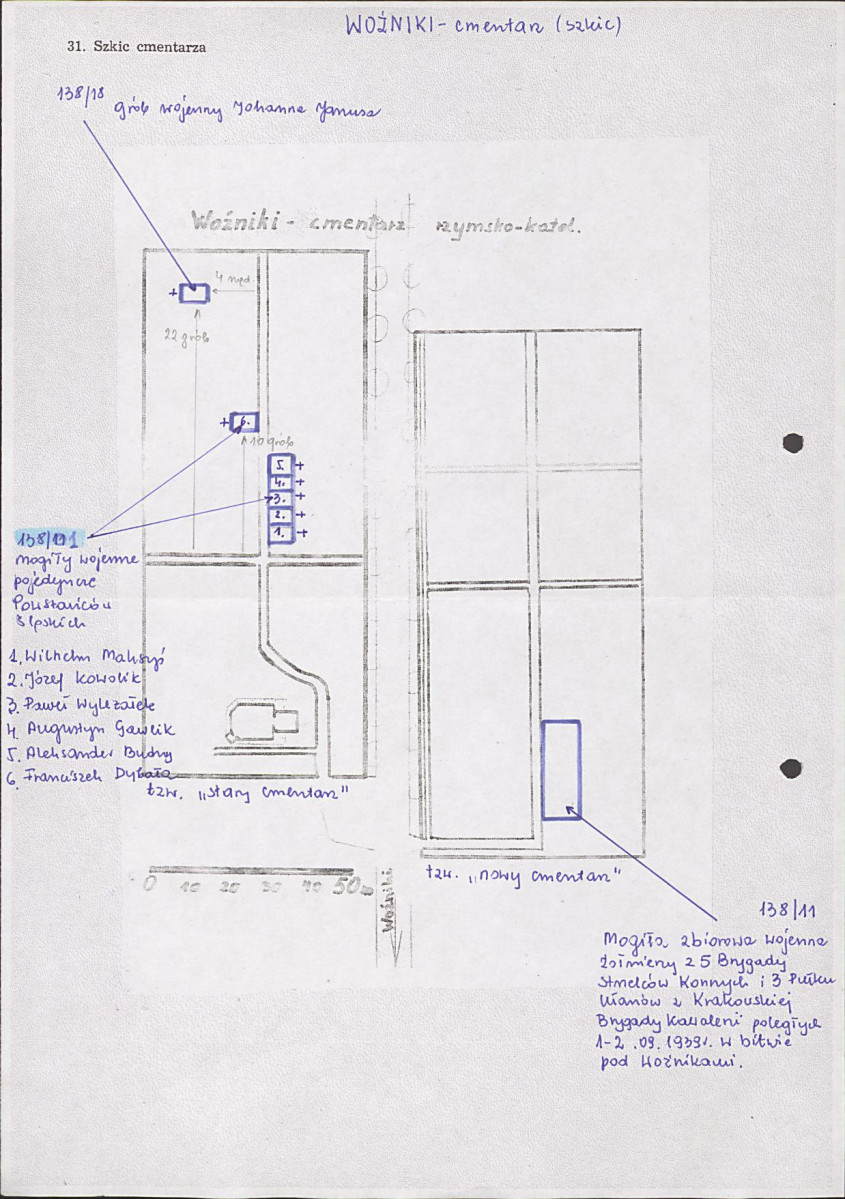 WOŹNIKI - cmentarz (szkic)
31. Szkic cmentarza
138/18
grób wojenny Johanna Janusa
Woźniki - cmentarz rzymsko-katol.
4 rzęd.
+
22 grób
+ 6.
10 grób
5. +
4. +
3. +
2. +
1. +
mogiły wojenne
pojedyncze
Powstańców
Śląskich
1. Wilhelm
2. Józef Kowolik
3. Paweł
4. Augustyn Gawlik
5. Aleksander Budny
6. Franciszek Dybała
tzw. „stary cmentarz"
tzw. „nowy cmentarz"
0 10 20 30 40 50m
Woźniki
138/11
Mogiła zbiorowa wojenna
żołnierzy z 5 Brygady
Strzelców Konnych i 3 Pułku
Ułanów z Krakowskiej
Brygady Kawalerii poległych
1-2.09.1939r. w bitwie
pod Woźnikami.